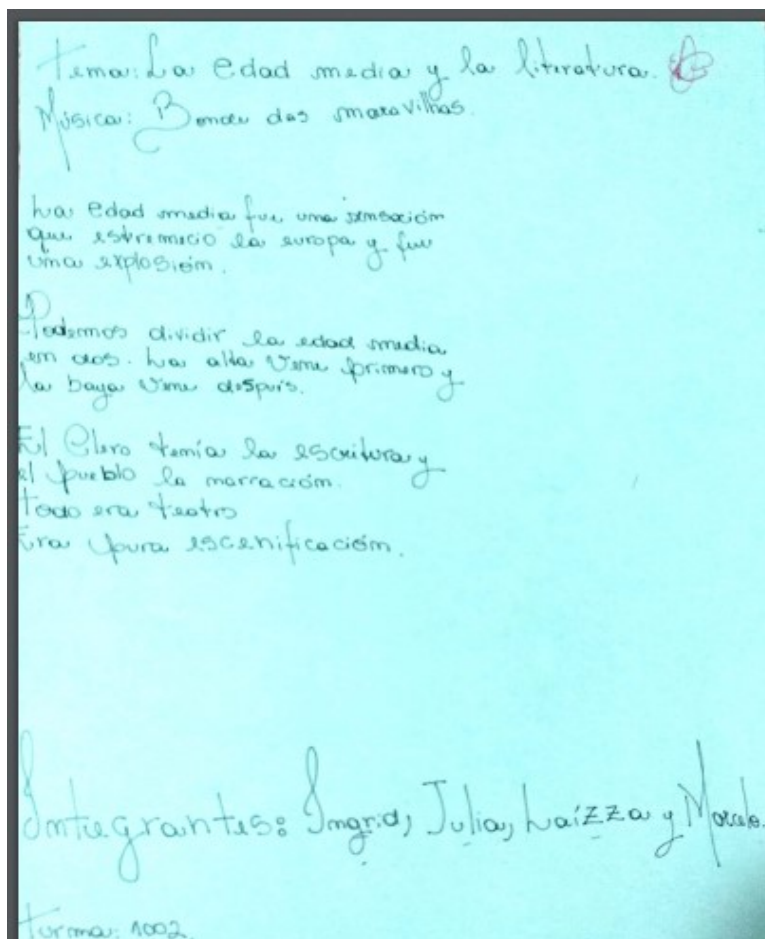 Tema: La edad media y la literatura.
Música: Bonde das maravilhas.
La Edad media fue una sensación
que estremecio la europa y fue
una explosión.
Podemos dividir la edad media
en dos. La alta viene primero y
la baya viene después.
El Clero tenía la escritura y
el pueblo la narración.
Todo era teatro
Era pura escenificación.
Integrantes: Ingrid, Julia, Laízza y Marcelo.
turma: 1002